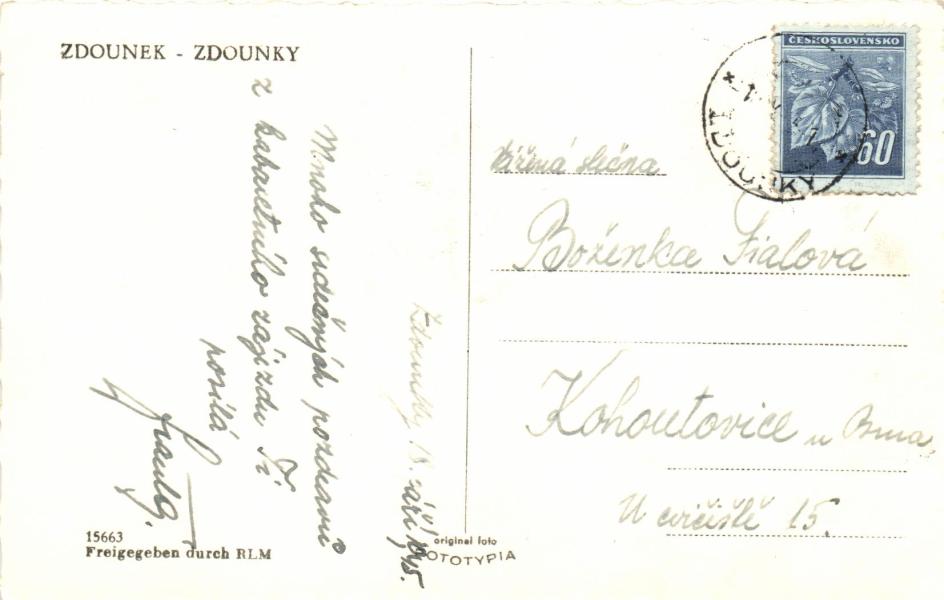 ZDOUNEK - ZDOUNKY
Mnoho srdečných pozdravů
z kabaretního zájezdu Ti
posílá
Zdounky 15. září 1945.
15663
Freigegeben durch RLM
original foto
FOTOTYPIA
ČESKOSLOVENSKO
60
ZDOUNKY
Vážená slečna
Boženka Fialová
Kohoutovice u Brna
U cvičiště 15.